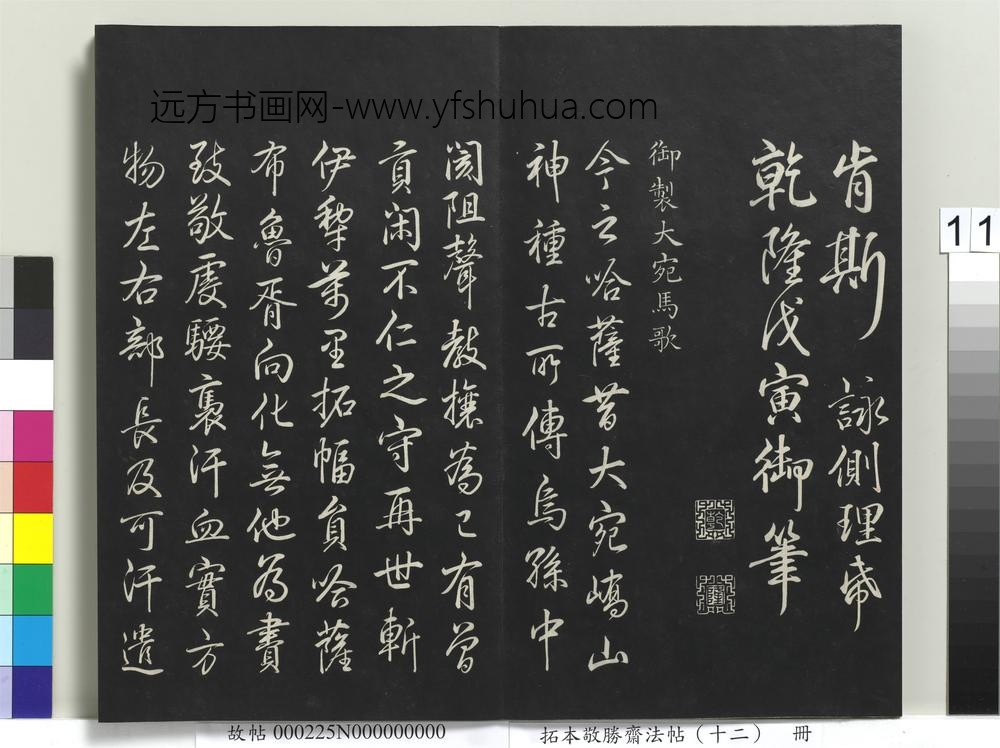 远方书画网-www.yfshuhua.com
肯斯 詠側理帋
乾隆戊寅御筆
乾
隆
御製大宛馬歌
今之哈薩昔大宛嶋山
神種古所傳烏孫中
閡阻聲教攘為己有曾
貢闲不仁之守再世斬
伊犂萬里拓幅員哈薩
布魯胥向化無他為贄
致敬虔騕褭汗血實方
物左右部長及可汗遣
11
故帖 000225N000000000
拓本敬勝齋法帖（十二） 冊